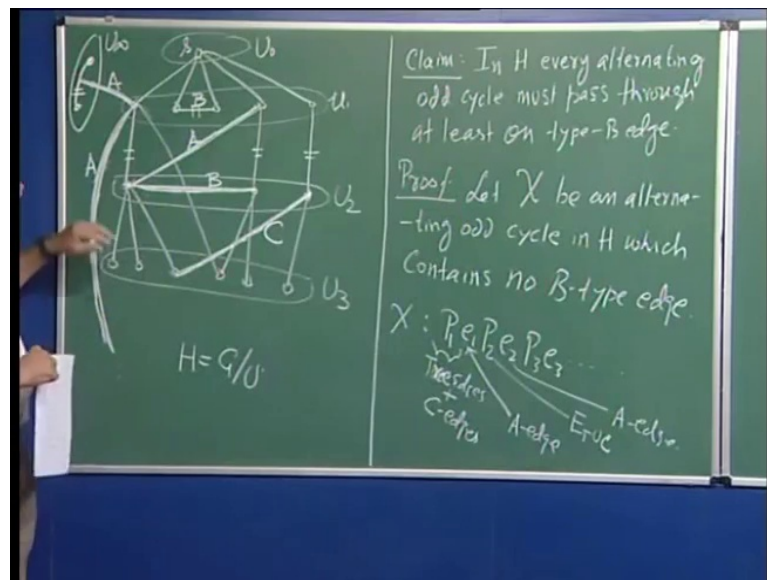 U∞
A
s
U₀
B
U₁
A
A
B
U₂
C
U₃
H=G/U
Claim: In H every alternating
odd cycle must pass through
at least on type-B edge.
Proof: Let X be an alterna-
-ting odd cycle in H which
Contains no B-type edge.
X : P₁e₁P₂e₂P₃e₃......
Treedges
+
C-edges
A-edge
E_T∪C
A-edge.